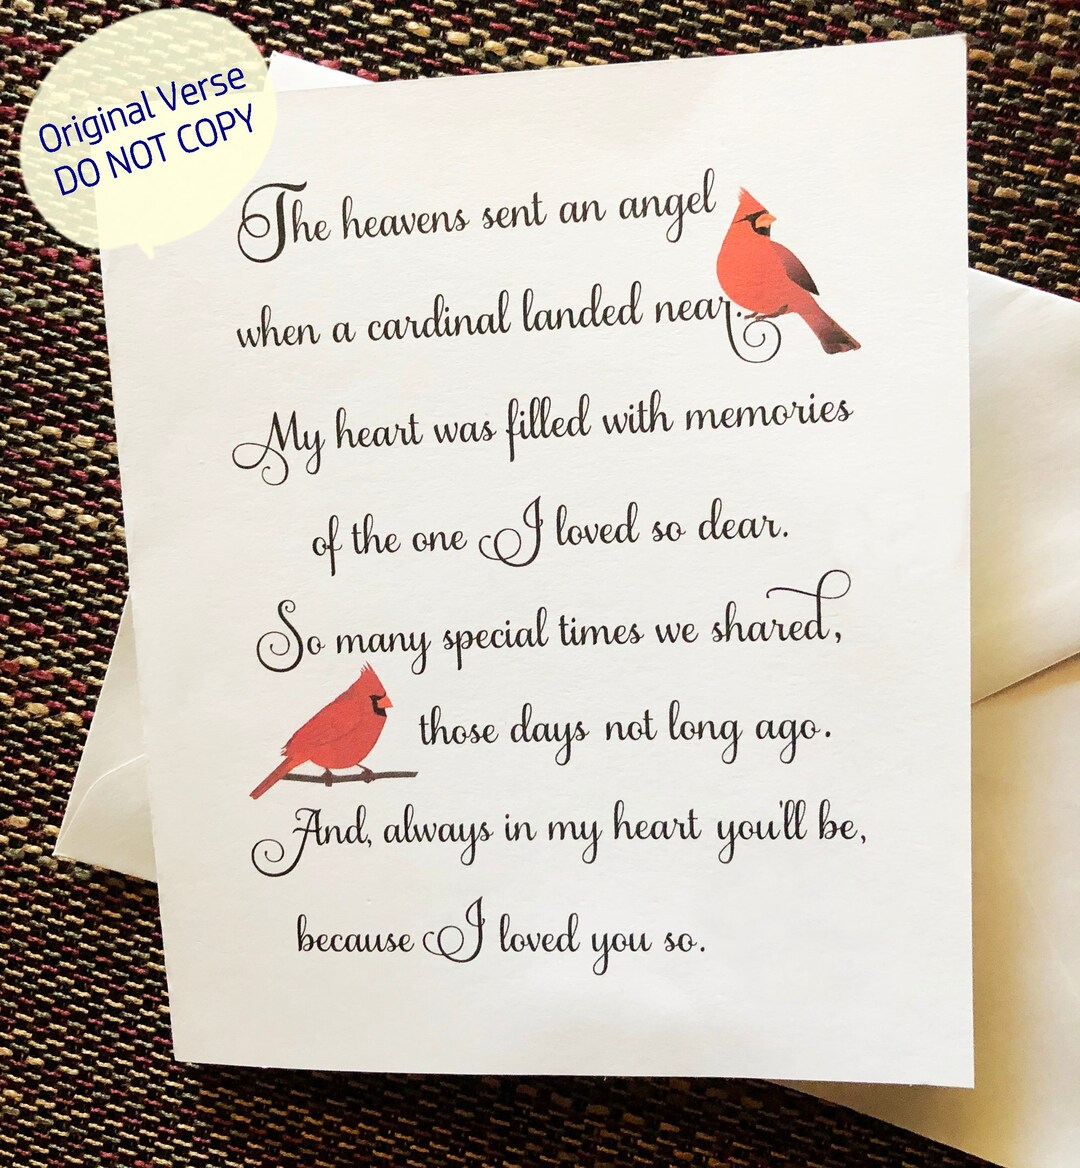 Original Verse
DO NOT COPY
The heavens sent an angel
when a cardinal landed near.
My heart was filled with memories
of the one I loved so dear.
So many special times we shared,
those days not long ago.
And, always in my heart you'll be,
because I loved you so.